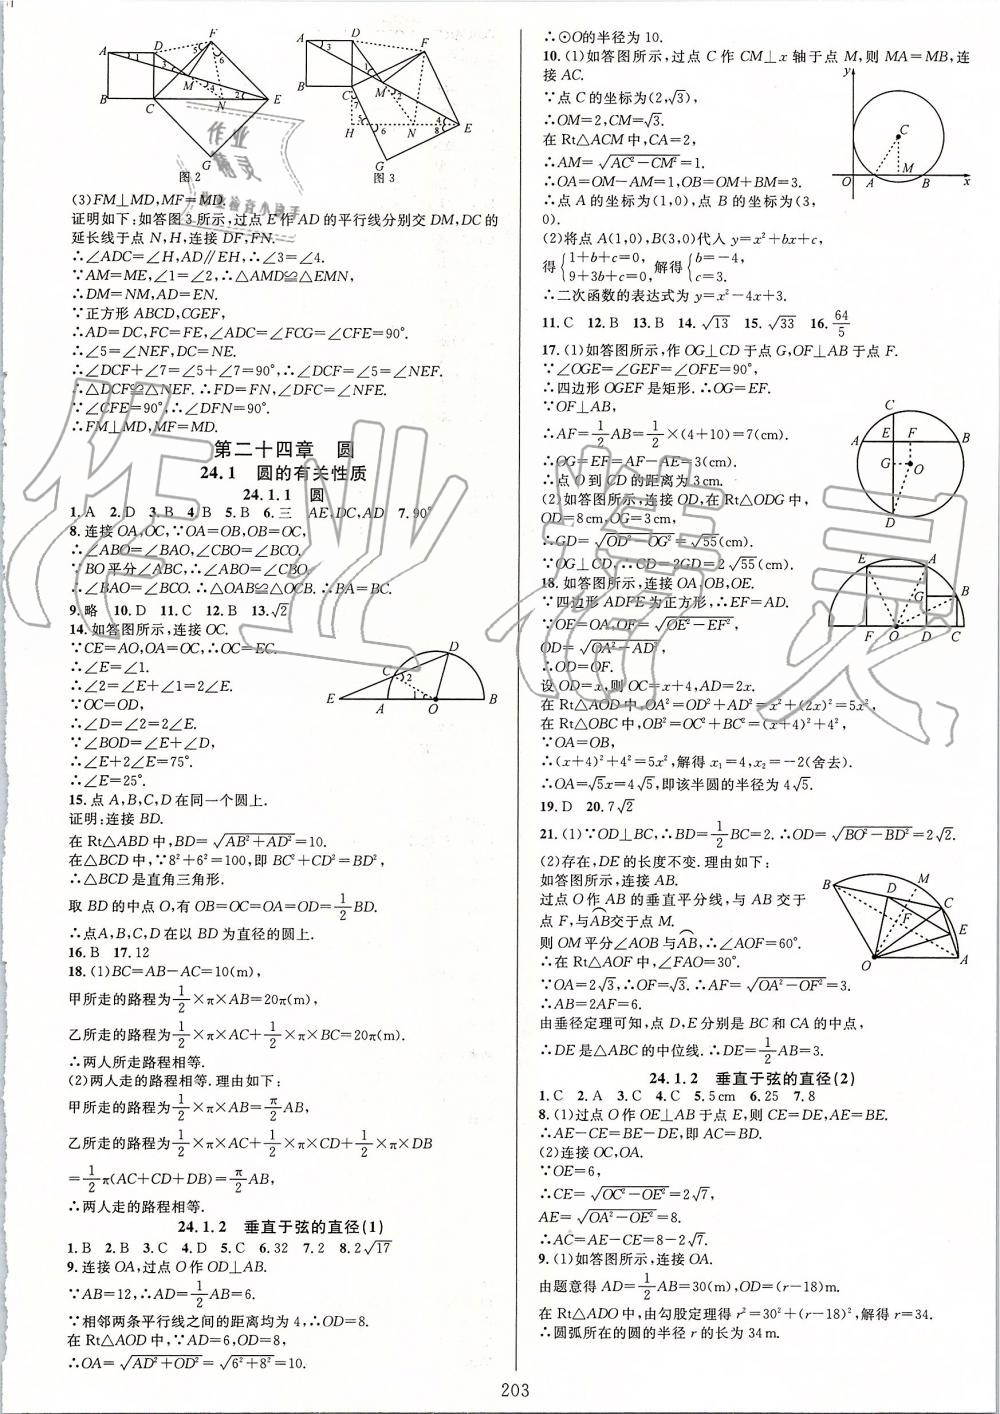 图2
图3
(3)FM⊥MD,MF=MD.
证明如下:如答图3所示,过点E作AD的平行线分别交DM,DC的
延长线于点N,H,连接DF,FN.
∴∠ADC=∠H,AD∥EH,∴∠3=∠4.
∵AM=ME,∠1=∠2,∴△AMD≌△EMN,
∴DM=NM,AD=EN.
∵正方形ABCD,CGEF,
∴AD=DC,FC=FE,∠ADC=∠FCG=∠CFE=90°.
∴∠5=∠NEF,DC=NE.
∵∠DCF+∠7=∠5+∠7=90°,∴∠DCF=∠5=∠NEF.
∴△DCF≌△NEF.∴FD=FN,∠DFC=∠NFE.
∵∠CFE=90°,∴∠DFN=90°.
∴FM⊥MD,MF=MD.
第二十四章 圆
24.1 圆的有关性质
24.1.1 圆
1.A 2.D 3.B 4.B 5.B 6.三 AE,DC,AD 7.90°
8.连接OA,OC,∵OA=OB,OB=OC,
∴∠ABO=∠BAO,∠CBO=∠BCO.
∵BO平分∠ABC,∴∠ABO=∠CBO.
∴∠BAO=∠BCO.∴△OAB≌△OCB.∴BA=BC.
9.略 10.D 11.C 12.B 13.√2
14.如答图所示,连接OC.
∵CE=AO,OA=OC,∴OC=EC.
∴∠E=∠1.
∴∠2=∠E+∠1=2∠E.
∵OC=OD,
∴∠D=∠2=2∠E.
∵∠BOD=∠E+∠D,
∴∠E+2∠E=75°.
∴∠E=25°.
15.点A,B,C,D在同一个圆上.
证明:连接BD.
在Rt△ABD中,BD=√(AB²+AD²)=10.
在△BCD中,∵8²+6²=100,即BC²+CD²=BD²,
∴△BCD是直角三角形.
取BD的中点O,有OB=OC=OA=OD=1/2BD.
∴点A,B,C,D在以BD为直径的圆上.
16.B 17.12
18.(1)BC=AB-AC=10(m),
甲所走的路程为1/2×π×AB=20π(m),
乙所走的路程为1/2×π×AC+1/2×π×BC=20π(m).
∴两人所走路程相等.
(2)两人走的路程相等.理由如下:
甲所走的路程为1/2×π×AB=π/2AB,
乙所走的路程为1/2×π×AC+1/2×π×CD+1/2×π×DB
=1/2π(AC+CD+DB)=π/2AB,
∴两人走的路程相等.
24.1.2 垂直于弦的直径(1)
1.B 2.B 3.C 4.D 5.C 6.32 7.2 8.2√17
9.连接OA,过点O作OD⊥AB.
∵AB=12,∴AD=1/2AB=6.
∵相邻两条平行线之间的距离均为4,∴OD=8.
在Rt△AOD中,∵AD=6,OD=8,
∴OA=√(AD²+OD²)=√(6²+8²)=10.
∴⊙O的半径为10.
10.(1)如答图所示,过点C作CM⊥x轴于点M,则MA=MB,连
接AC.
∵点C的坐标为(2,√3),
∴OM=2,CM=√3.
在Rt△ACM中,CA=2,
∴AM=√(AC²-CM²)=1.
∴OA=OM-AM=1,OB=OM+BM=3.
∴点A的坐标为(1,0),点B的坐标为(3,
0).
(2)将点A(1,0),B(3,0)代入y=x²+bx+c,
得{1+b+c=0, 9+3b+c=0, 解得{b=-4, c=3.
∴二次函数的表达式为y=x²-4x+3.
11.C 12.B 13.B 14.√13 15.√33 16.64/5
17.(1)如答图所示,作OG⊥CD于点G,OF⊥AB于点F.
∵∠OGE=∠GEF=∠OFE=90°,
∴四边形OGEF是矩形.∴OG=EF.
∵OF⊥AB,
∴AF=1/2AB=1/2×(4+10)=7(cm).
∴OG=EF=AF-AE=3(cm).
∴点O到CD的距离为3cm.
(2)如答图所示,连接OD,在Rt△ODG中,
OD=8cm,OG=3cm,
∴GD=√(OD²-OG²)=√55(cm).
∵OG⊥CD,∴CD=2GD=2√55(cm).
18.如答图所示,连接OA,OB,OE.
∵四边形ADFE为正方形,∴EF=AD.
∵OE=OA,OF=√(OE²-EF²),
OD=√(OA²-AD²),
∴OD=OF.
设OD=x,则OC=x+4,AD=2x.
在Rt△AOD中,OA²=OD²+AD²=x²+(2x)²=5x²,
在Rt△OBC中,OB²=OC²+BC²=(x+4)²+4²,
∵OA=OB,
∴(x+4)²+4²=5x²,解得x₁=4,x₂=-2(舍去).
∴OA=√5x=4√5,即该半圆的半径为4√5.
19.D 20.7√2
21.(1)∵OD⊥BC,∴BD=1/2BC=2.∴OD=√(BO²-BD²)=2√2.
(2)存在,DE的长度不变.理由如下:
如答图所示,连接AB.
过点O作AB的垂直平分线,与AB交于
点F,与AB交于点M.
则OM平分∠AOB与AB,∴∠AOF=60°.
∴在Rt△AOF中,∠FAO=30°.
∵OA=2√3,∴OF=√3.∴AF=√(OA²-OF²)=3.
∴AB=2AF=6.
由垂径定理可知,点D,E分别是BC和CA的中点,
∴DE是△ABC的中位线.∴DE=1/2AB=3.
24.1.2 垂直于弦的直径(2)
1.C 2.A 3.C 4.C 5.5cm 6.25 7.8
8.(1)过点O作OE⊥AB于点E,则CE=DE,AE=BE.
∴AE-CE=BE-DE,即AC=BD.
(2)连接OC,OA.
∵OE=6,
∴CE=√(OC²-OE²)=2√7,
AE=√(OA²-OE²)=8.
∴AC=AE-CE=8-2√7.
9.(1)如答图所示,连接OA.
由题意得AD=1/2AB=30(m),OD=(r-18)m.
在Rt△ADO中,由勾股定理得r²=30²+(r-18)²,解得r=34.
∴圆弧所在的圆的半径r的长为34m.
203